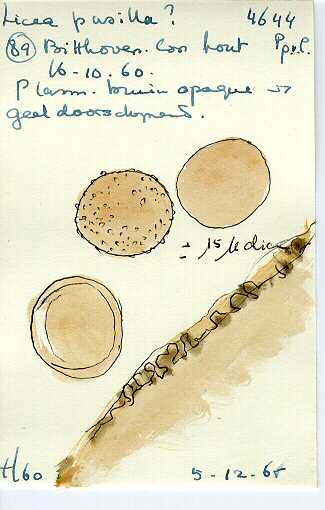 Licea pusilla? 4644
89 Bilthoven. Cos hout
16-10-60.
Plasm. bruin opaque
geel doorschijnend.
± 15 µ diam
H60 5-12-65